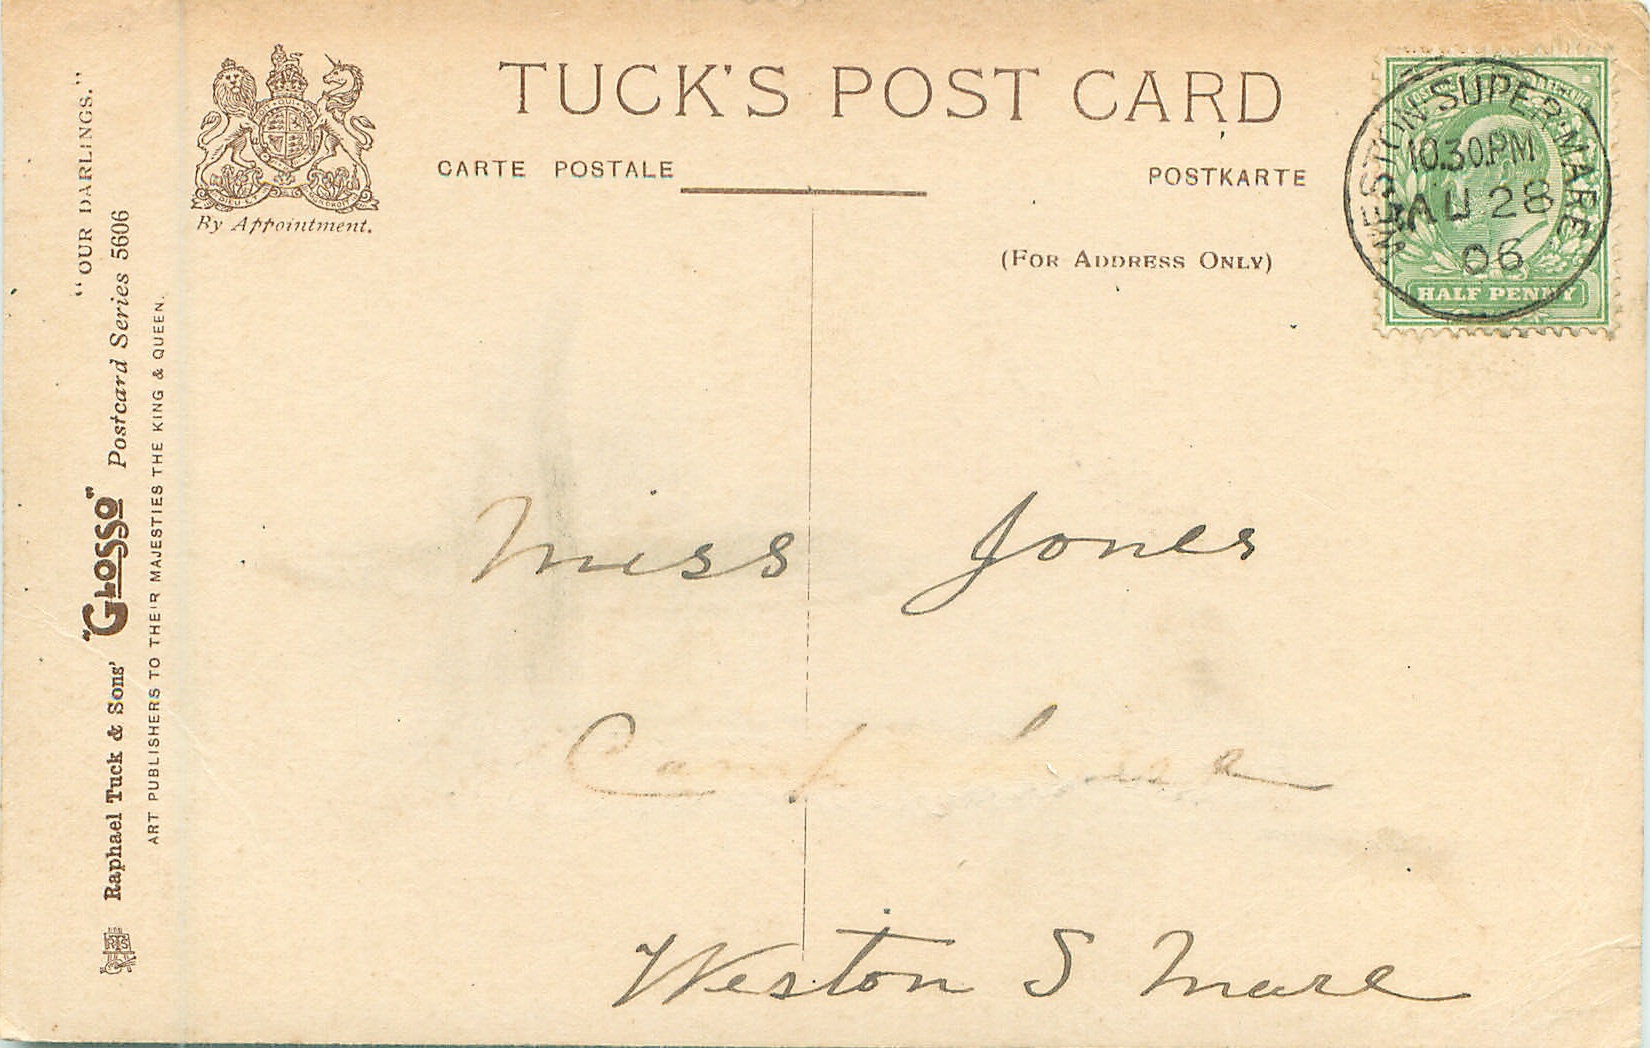 TUCK'S POST CARD
CARTE POSTALE
POSTKARTE
By Appointment.
(FOR ADDRESS ONLY)
WESTON-SUPER-MARE
10.30.PM
AU 28
06
HALF PENNY
"OUR DARLINGS."
Raphael Tuck & Sons' "GLOSSO" Postcard Series 5606
ART PUBLISHERS TO THEIR MAJESTIES THE KING & QUEEN.
Miss Jones
Weston S Mare